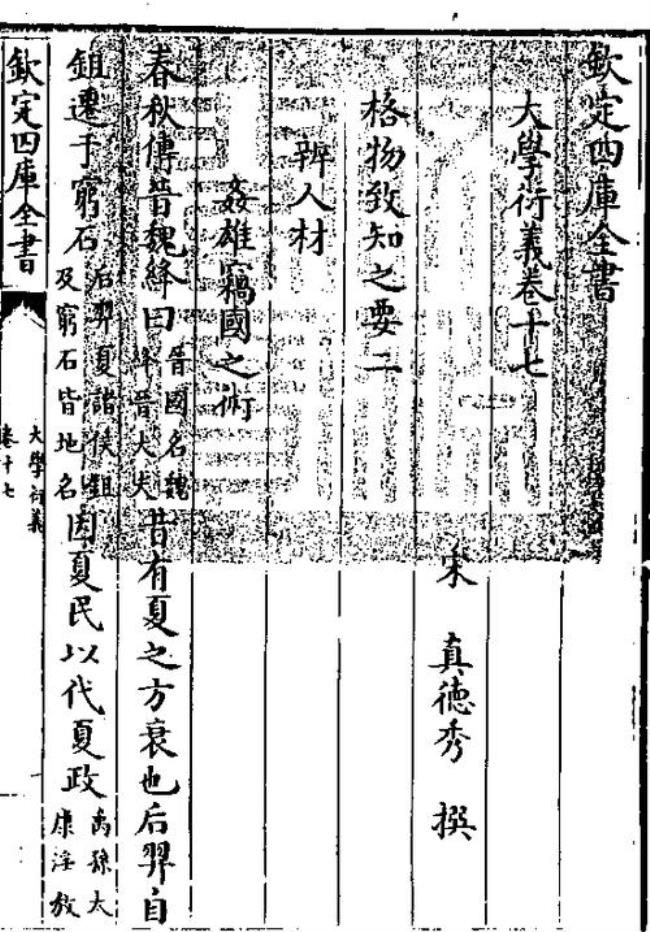 欽定四庫全書
大學衍義卷十七
宋 真德秀 撰
格物致知之要二
辨人材
姦雄竊國之術
春秋傳晉魏絳曰晉國名魏絳晉大夫昔有夏之方衰也后羿自
鉏遷于窮石后羿夏諸侯鉏及窮石皆地名因夏民以代夏政禹孫太康淫放
欽定四庫全書
大學衍義
卷十七